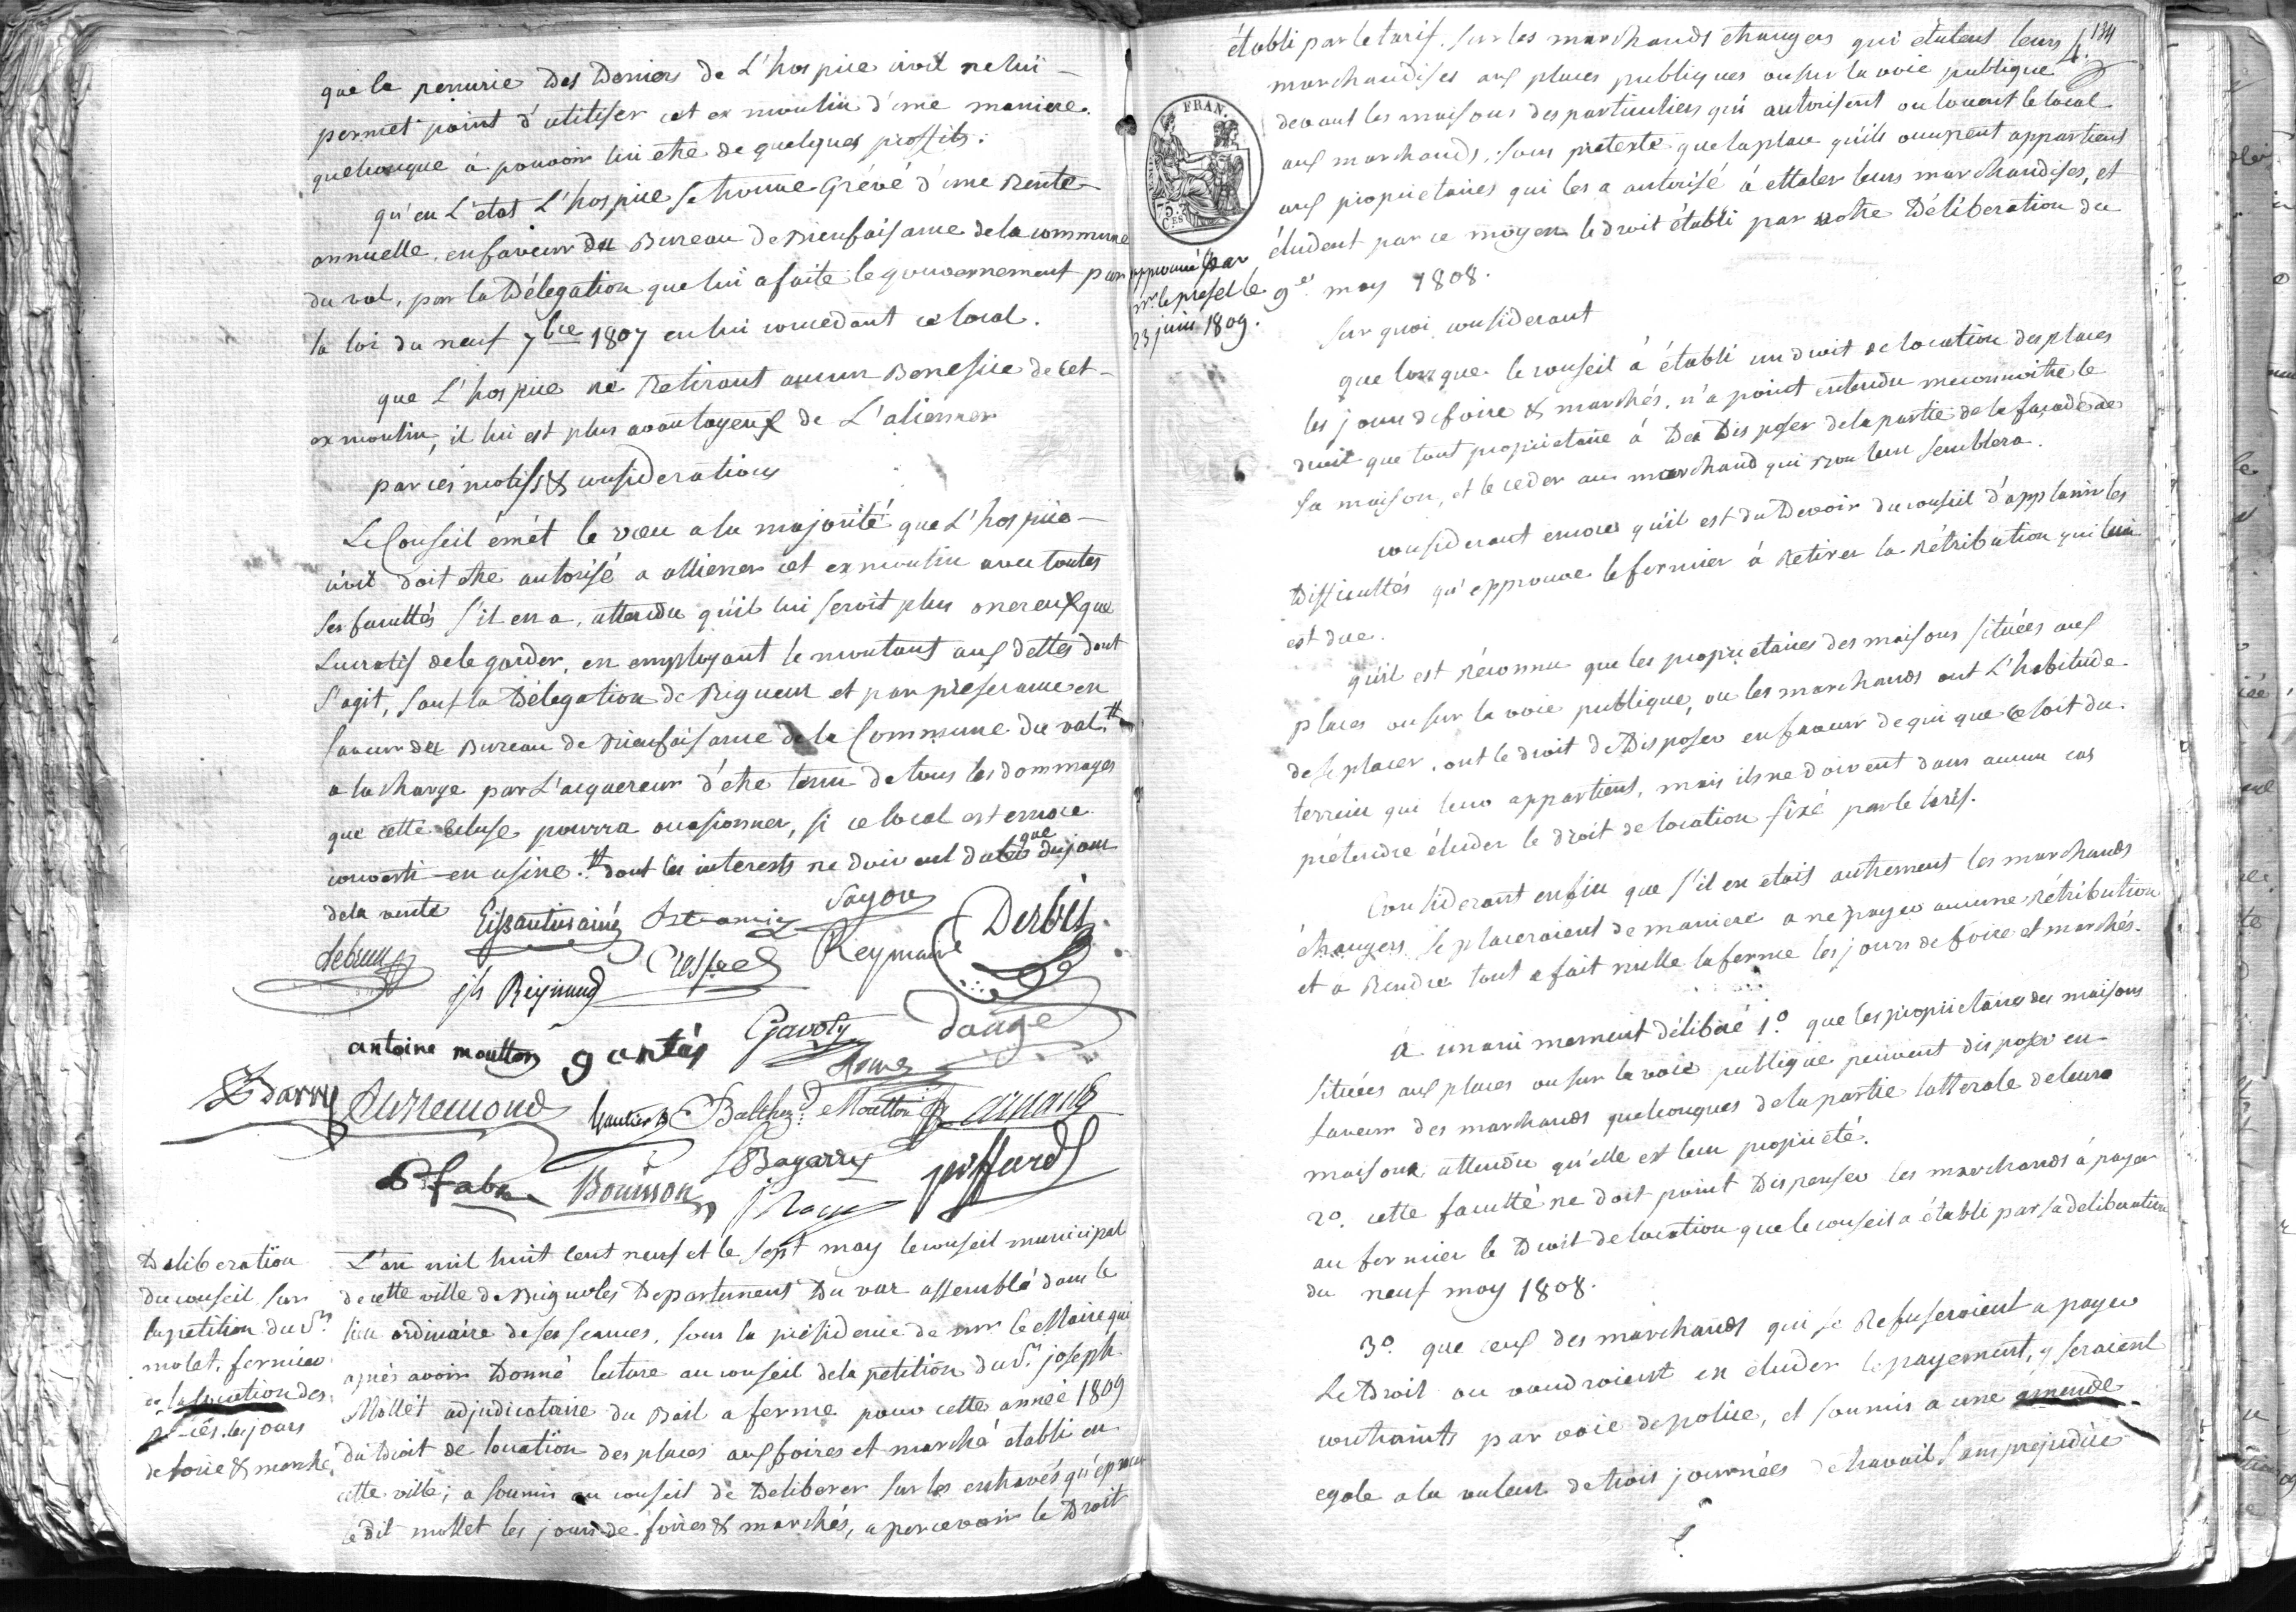 que la penurie des deniers de L'hospice civil ne lui
permet point d'utiliser cet ex moulin d'une maniere
quelconque a pouvoir lui etre de quelques proffits.
qu'en L'etat L'hospice se trouve Grévé d'une Rente
annuelle, en faveur du Bureau de Bienfaisance de la commune
du val, par la Délégation que lui a faite le gouvernement par
la loi du neuf 7bre 1807 en lui concedant ce local.
que L'hospice ne Retirant aucun Benefice de cet
ex moulin, il lui est plus avantageux de L'aliener
par ces motifs & considerations
Le Conseil émét le voeu a la majorité que L'hospice
civil doit etre autorisé a alliener cet ex moulin avec toutes
ses facultés s'il en a, attendu qu'il lui seroit plus onereux que
Lucratif de le garder, en employant le montant aux dettes dont
S'agit, sauf la Délégation de Rigueur et par preferance en
faveur du Bureau de Bienfaisance de la Commune du val #
a la charge par L'acquereur d'etre tenu de tous les dommages
que cette ecluse pourra occasionner, si ce local est encore
converti en usine. # dont les interests ne doivent datés que du jour
de la vente
Eissautier ainé
Sayou
Derbès
Lebrun
jh Reynaud
Reymard
antoine moutton
gantés
Gavoty
Dauge
Barry
Aurremond
Gautier
Balthzd Moutton
arnaud
P fabre
Bouisson
Bagarry
piffard
Deliberation
du conseil sur
la petition du Sr
molet, fermier
de la location des
places les jours
de foire & marché
L'an mil huit cent neuf et le sept may le conseil municipal
de cette ville de Brignoles Departement du var assemblé dans le
lieu ordinaire de ses seances, sous la présidence de mr le Maire qui
après avoir Donné lecture au conseil de la pétition du Sr joseph
Mollét adjudicataire du Bail a ferme pour cette année 1809
du Droit de location des places aux foires et marché établi en
cette ville; a soumis au conseil de Deliberer sur les entravés qu'eprouve
le dit mollet les jours de foires & marchés, a percevoir le Droit
134
établi par le tarif. sur les marchands étrangers qui étalent leurs
marchandises aux places publiques ou sur la voie publique
devant les maisons des particuliers qui autorisent ou louent le local
aux marchands, sous pretexte que la place qu'ils occupent appartient
aux proprietaires qui les a autorisé à ettaler leurs marchandises, et
éludent par ce moyen le droit établi par notre Déliberation du
9e may 1808.
FRAN.
75
Ces
approuvé par
mr le prefet le
23 juin 1809.
Sur quoi considerant
que lorsque le conseil à établi un droit de location des places
les jours de foire & marchés, n'a point entendu meconnoitre le
droit que tout proprietaire à de Disposer de la partie de la façade de
sa maison, et le ceder au marchand qui bon leur semblera.
considerant encore qu'il est du Devoir du conseil d'applanir les
Difficultés qu'epprouve le fermier à Retirer la Rétribution qui lui
est due.
qu'il est réconnu que les proprietaires des maisons situées aux
places ou sur la voie publique, ou les marchands ont L'habitude
de se placer, ont le droit de Disposer en faveur de qui que ce soit du
terrein qui leur appartient, mais ils ne doivent dans aucun cas
prétendre éluder le Droit de location fixé par le tarif.
Considerant enfin que s'il en etois autrement les marchands
étrangers se placeraient de maniere a ne payer aucune rétribution
et a Rendre tout a fait nulle la ferme les jours de foire et marchés.
à unanimement délibéré 1o. que les proprietaires des maisons
situées aux places ou sur la voie publique peuvent disposer en
faveur des marchands quelconques de la partie latterale de leurs
maisons attendu qu'elle est leur proprieté.
2o. cette faculté ne doit point Dispenser les marchands à payer
au fermier le Droit de location que le conseil a établi par sa deliberation
du neuf may 1808.
3o. que ceux des marchands qui se Refuseroient a payer
Le Droit ou voudroient en éluder le payement, y seraient
contraints par voie de police, et soumis a une amende
egale a la valeur de trois journées de travail sans prejudice